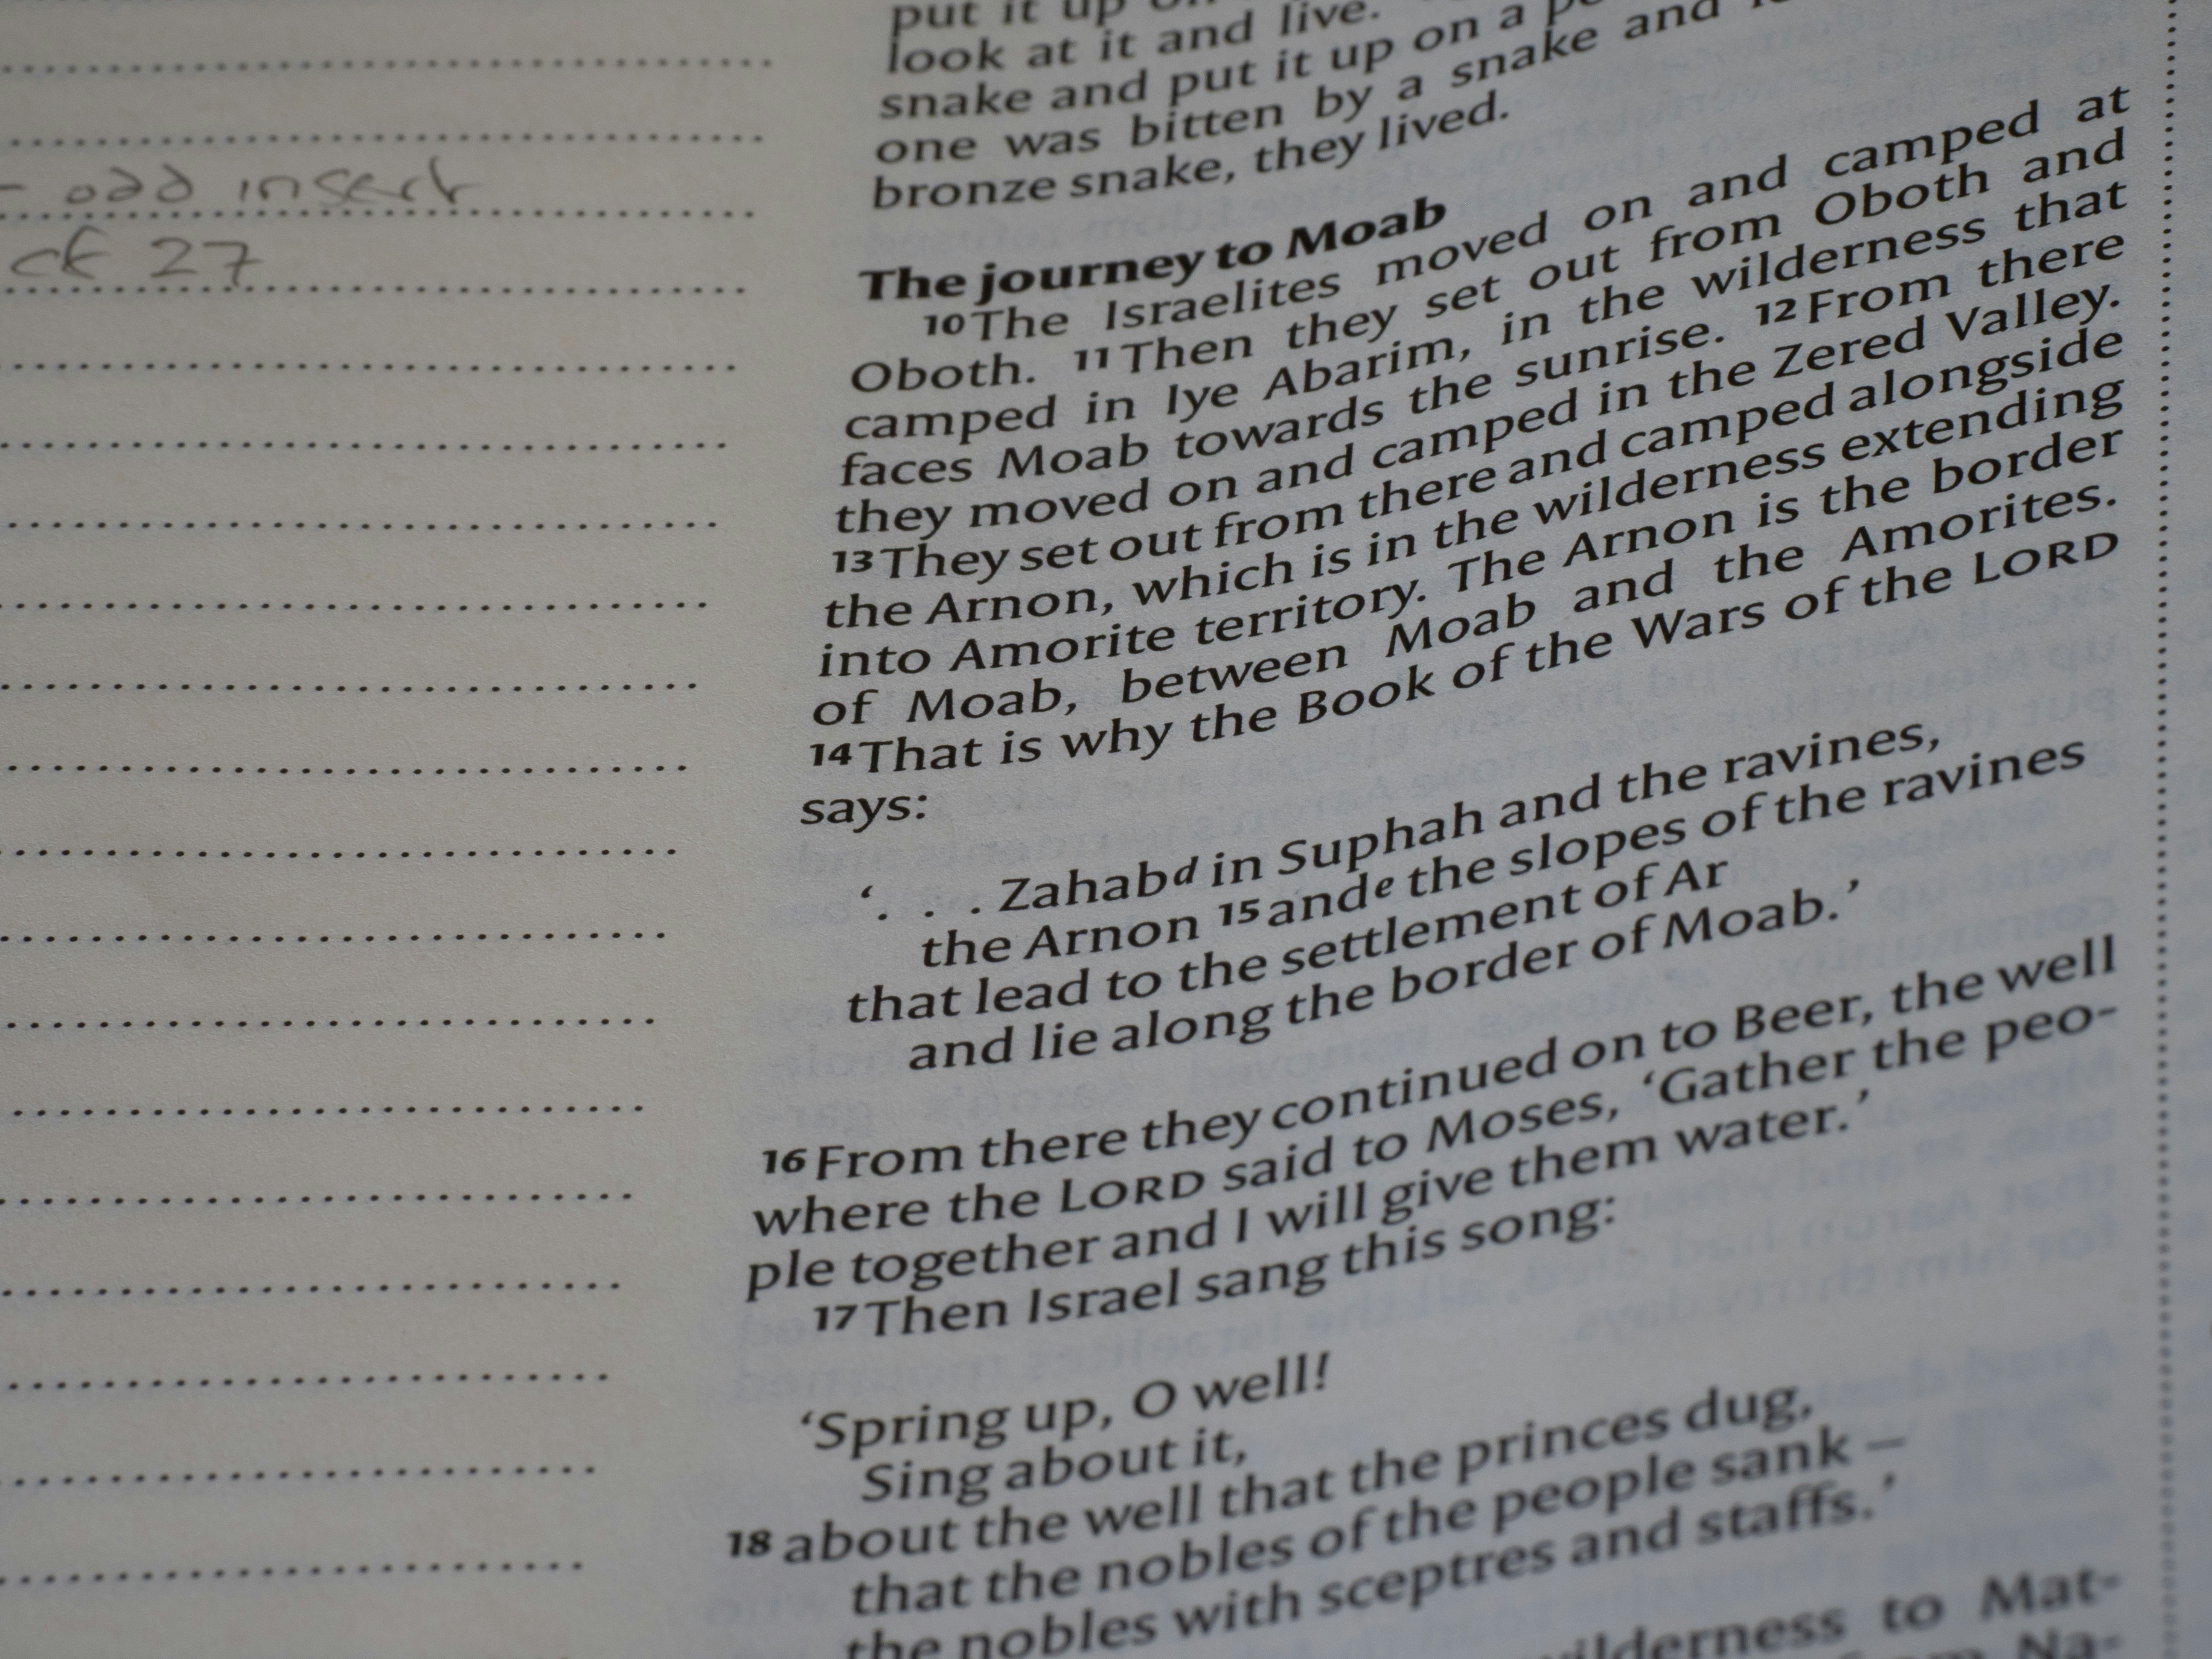 – odd insert
cf 27
put it up on
look at it and live.
snake and put it up on a
one was bitten by a snake and
bronze snake, they lived.
The journey to Moab
10 The Israelites moved on and camped at
Oboth. 11 Then they set out from Oboth and
camped in Iye Abarim, in the wilderness that
faces Moab towards the sunrise. 12 From there
they moved on and camped in the Zered Valley.
13 They set out from there and camped alongside
the Arnon, which is in the wilderness extending
into Amorite territory. The Arnon is the border
of Moab, between Moab and the Amorites.
14 That is why the Book of the Wars of the LORD
says:
‘. . . Zahab d in Suphah and the ravines,
the Arnon 15 and e the slopes of the ravines
that lead to the settlement of Ar
and lie along the border of Moab.’
16 From there they continued on to Beer, the well
where the LORD said to Moses, ‘Gather the peo-
ple together and I will give them water.’
17 Then Israel sang this song:
‘Spring up, O well!
Sing about it,
18 about the well that the princes dug,
that the nobles of the people sank –
the nobles with sceptres and staffs.’
wilderness to Mat-
Na-